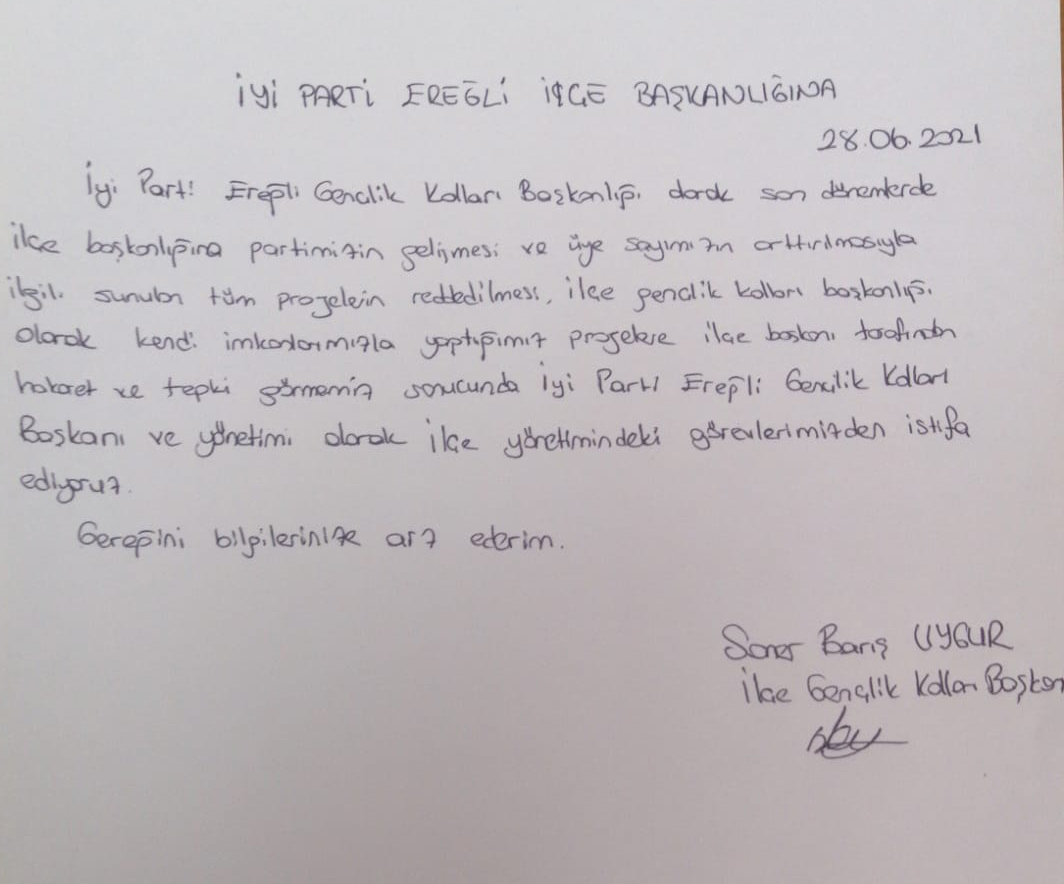 İYİ PARTİ EREĞLİ İLÇE BAŞKANLIĞINA
28.06.2021
İyi Parti Ereğli Genclik Kolları Başkanlığı olarak son dönemlerde
ilçe başkanlığına partimizin gelişmesi ve üye sayımızın arttırılmasıyla
ilgili sunulan tüm projelein reddedilmesi, ilçe genclik kolları başkanlığı
olarak kendi imkanlarımızla yaptığımız projelere ilçe başkanı tarafından
hakaret ve tepki görmemiz sonucunda İyi Parti Ereğli Gençlik Kolları
Başkanı ve yönetimi olarak ilçe yönetimindeki görevlerimizden istifa
ediyoruz.
Gereğini bilgilerinize arz ederim.
Soner Barış UYGUR
İlçe Gençlik Kolları Başkan